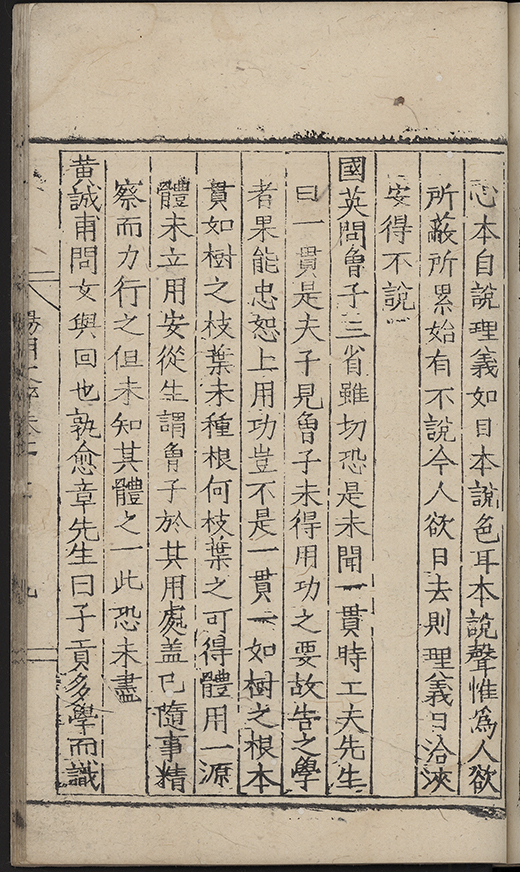 心本自說理義如目本說色耳本說聲惟爲人欲
所蔽所累始有不說今人欲日去則理義日洽浹
安得不說
國英問曾子三省雖切恐是未聞一貫時工夫先生
曰一貫是夫子見曾子未得用功之要故告之學
者果能忠恕上用功豈不是一貫一如樹之根本
貫如樹之枝葉未種根何枝葉之可得體用一源
體未立用安從生謂曾子於其用處盖已隨事精
察而力行之但未知其體之一此恐未盡
黃誠甫問女與回也孰愈章先生曰子貢多學而識